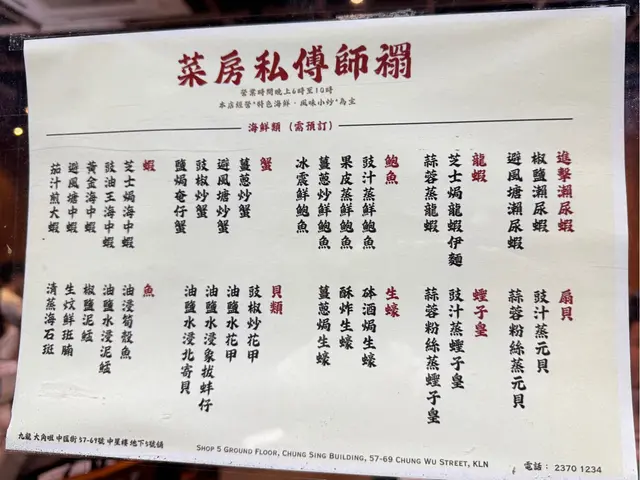 禤師傅私房菜
營業時間晚上6時至10時
本店經營"特色海鮮·風味小炒"為主
海鮮類 (需預訂)
進擊瀨尿蝦
椒鹽瀨尿蝦
避風塘瀨尿蝦
龍蝦
芝士焗龍蝦伊麵
蒜蓉蒸龍蝦
鮑魚
豉汁蒸鮮鮑魚
果皮蒸鮮鮑魚
薑蔥炒鮮鮑魚
冰震鮮鮑魚
蟹
薑蔥炒蟹
避風塘炒蟹
豉椒炒蟹
鹽焗奄仔蟹
蝦
芝士焗海中蝦
豉油王海中蝦
黃金海中蝦
避風塘中蝦
茄汁煎大蝦
扇貝
豉汁蒸元貝
蒜蓉粉絲蒸元貝
蟶子皇
豉汁蒸蟶子皇
蒜蓉粉絲蒸蟶子皇
生蠔
砵酒焗生蠔
酥炸生蠔
薑蔥焗生蠔
貝類
豉椒炒花甲
油鹽水花甲
油鹽水浸象拔蚌仔
油鹽水浸北寄貝
魚
油浸筍殼魚
油鹽水浸泥鯭
椒鹽泥鯭
生炆鮮斑腩
清蒸海石斑
九龍 大角咀 中匯街 57-69號 中星樓 地下5號舖
SHOP 5 GROUND FLOOR, CHUNG SING BUILDING, 57-69 CHUNG WU STREET, KLN
電話: 2370 1234